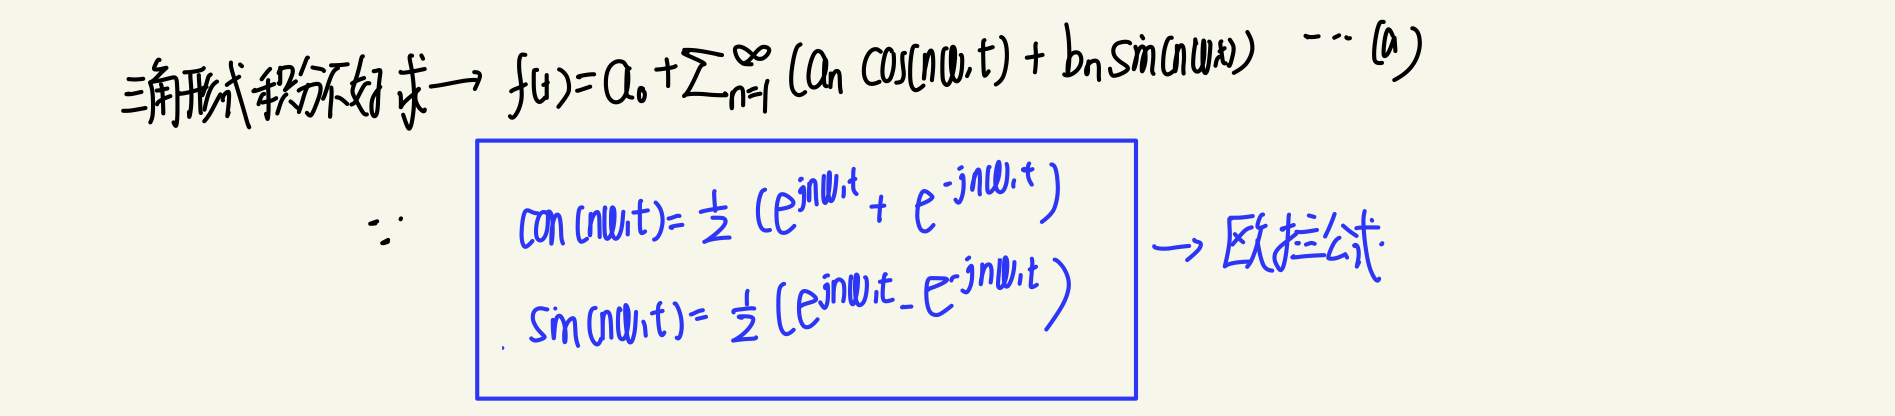 三角形式傅里叶级数 → f(t)=a₀+∑ₙ₌₁^∞ (aₙ cos(nω₁t) + bₙ sin(nω₁t)) ... (a)
∵ con(nω₁t)= 1/2 (e^{jnω₁t} + e^{-jnω₁t})
→ 欧拉公式
sin(nω₁t)= 1/2 (e^{jnω₁t} - e^{-jnω₁t})